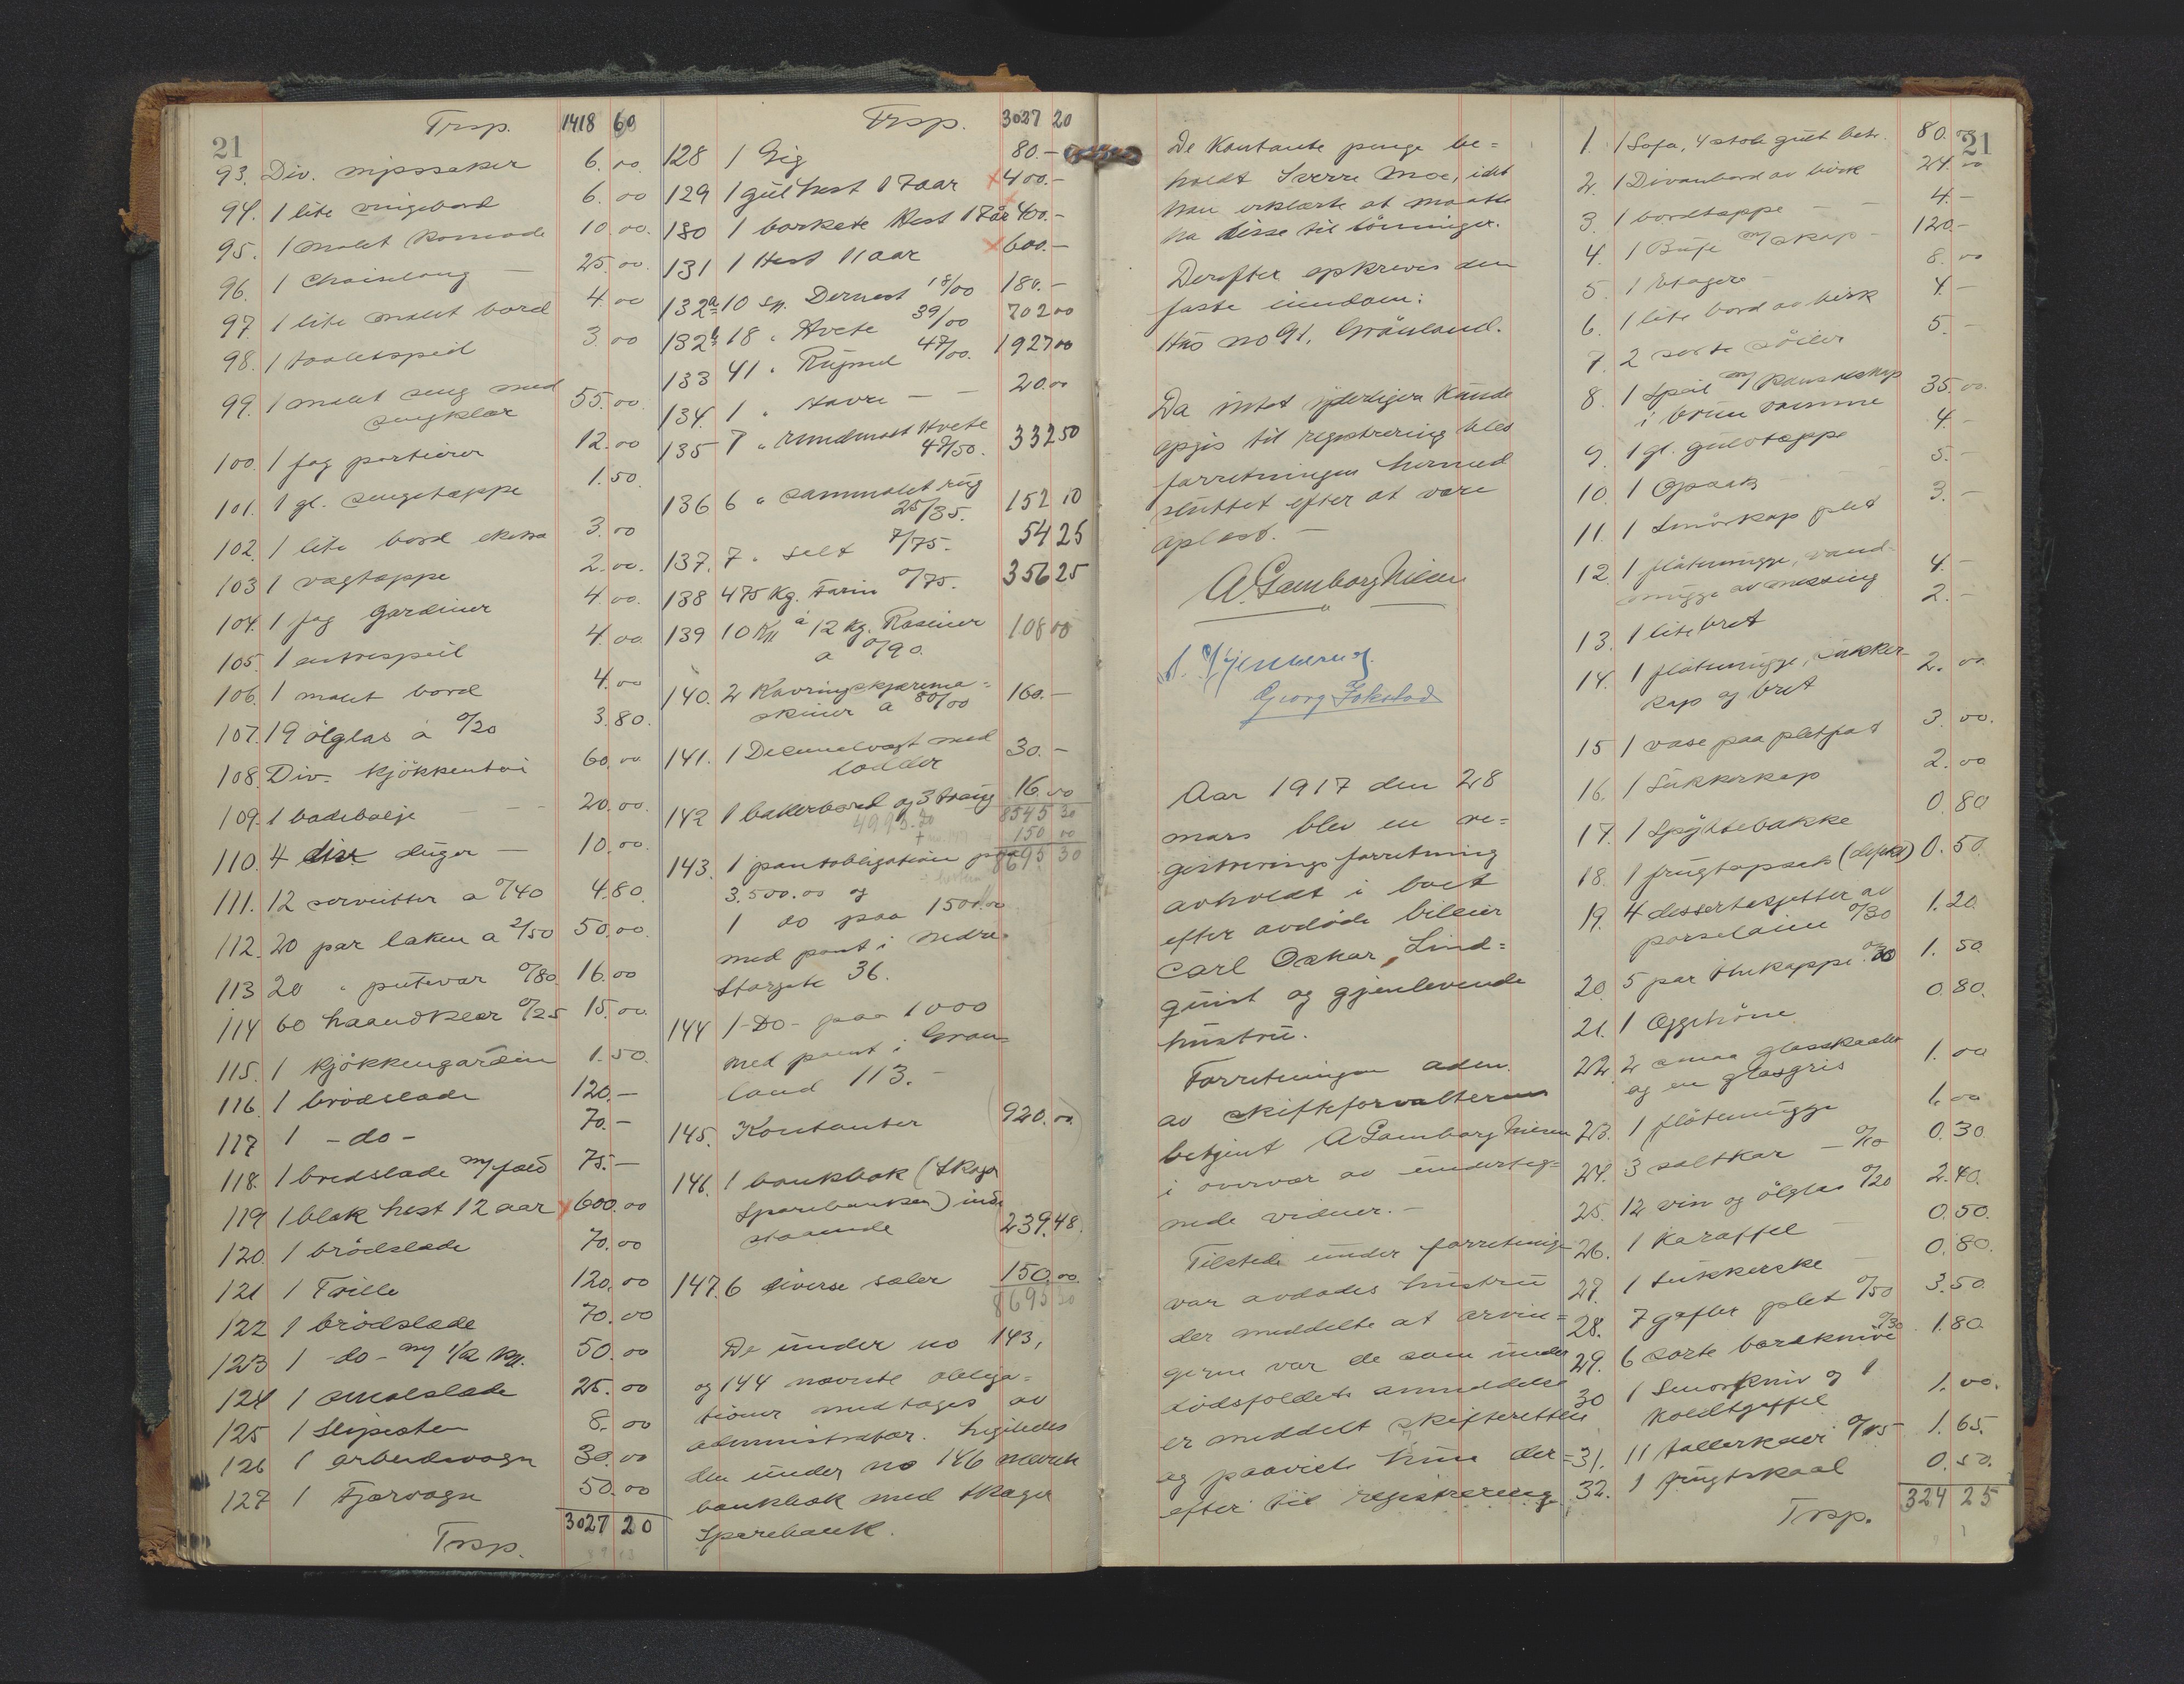 21
Trsp. 1418 60
93. Div. nipssaker 6.00
94. 1 lite vingebord 6.00
95. 1 malet Komode 10.00
96. 1 Chaiselong — 25.00
97. 1 lite malet bord 4.00
98. 1 toaletspeil 3.00
99. 1 malet seng med
sengklær 55.00
100. 1 fag portierer 12.00
101. 1 gl. sengetæppe 1.50
102. 1 lite bord 3.00
103 1 vægtæppe 2.00
104. 1 fag gardiner 4.00
105. 1 entrespeil 4.00
106. 1 malet bord 4.00
107. 19 ölglas à 0/20 3.80
108. Div. kjökkentøi 60.00
109. 1 badebalje — — 20.00
110. 4 div duger — 10.00
111. 12 servietter a 0/40 4.80
112. 20 par laken a 2/50 50.00
113 20 " putevar 0/80 16.00
114 60 haandklær 0/25 15.00
115. 1 kjökkengardin 1.50
116. 1 brödslade 120.—
117 1 -do- 70.—
118. 1 bredslade m/ fæld 75.—
119 1 blak hest 12 aar x 600.00
120. 1 brödslede 70.00
121 1 Trille 120.00
122 1 brödslede 70.00
123 1 -do- m/ 1/2 50.00
124 1 smalslede 25.00
125 1 Slipesten 8.00
126 1 arbeidsvogn 30.00
127 1 Fjærvogn 50.00
Trsp. 3027 20
Trsp. 3027 20
128 1 Gig 80.—
129 1 gul hest 17 aar x 400.—
130 1 borkete Hest 17 år 400.—
131 1 Hest 11 aar x 600.—
132a 10 sk. 18/00 180.—
132b 18 " Hvete 39/00 702 00
133 41 " Rugmel 47/00 1927 00
134. 1 " Havre — — 20.00
135 7 " Hvete
47/50. 332 50
136 6 " sammalet rug
25/35. 152 10
137. 7 " salt 7/75. 54 25
138 475 Kg. Farin 0/75. 356 25
139 10 à 12 Kg. Rosiner
a 0/90. 108 00
140. 2 Kavringskjærema=
skiner a 80/00 160.—
141. 1 Decimalvægt med
lodder 30.—
142 1 bakerbord og 3 traug 16.00
4995.70 8545 30
150 00
143. 1 pantobligation paa 8695 30
3.500.00 og
1 do paa 1500.00
med pant i nedre
Storgate 36.
144 1 -Do- paa 1000
med pant i Grøn
land 113.—
145. Kontanter (920.00)
146. 1 bankbok (Skoger
Sparebanken) inde
staaende (239.48)
147. 6 diverse seler 150.00
8695 30
De under no 143,
og 144 nævnte obliga=
tioner medtages av
administrator. Ligeledes
den under no 146 nævnte
bankbok med Skoger
Sparebank.
De Kontante penge be=
holdt Sverre Moe, idet
han erklærte at maatte
ha disse til lönninger.
Derefter opkreves den
faste eiendom:
Hus no 91, Grönland.
Da intet yderligere kunde
opgis til registrering blev
forretningen hermed
sluttet efter at være
oplæst.—
A. Gamborg Nilsen
Georg Fokstad
Aar 1917 den 28
mars blev en re=
gistreringsforretning
avholdt i boet
efter avdöde bileier
Carl Oskar Lind=
quist og gjenlevende
hustru.
Forretningen adm.
av skifteforvalterens
betjent A Gamborg Nilsen
i overvær av underteg=
nede vidner.—
Tilstede under forretning
var avdödes hustru
der meddelte at arvin=
gerne var de som under
dödsfaldets anmeldelse
er meddelt skifteretten
og paaviste hun der=
efter til registrering
21
1. 1 Sofa, 4 stole gult betr. 80.00
2. 1 Divanbord av birk 24.00
3. 1 bordtæppe — — 4.—
4. 1 Bufe m/ skap — 120.—
5. 1 Etagere 8.00
6. 1 lite bord av birk 4.—
7. 2 sorte söiler 5.—
8. 1 Speil m/ Konsolskap
i brun ramme 35.00
9. 1 gl. gulvtæppe 4.—
10. 1 Opsats 5.—
11. 1 Smörkop plet 3.—
12. 1 flötemugge, vand-
mugge av messing 4.—
13. 1 lite bret 2.—
14. 1 flötemugge, sukker-
kop og bret 2.00
15 1 vase paa pletfad 3.00
16. 1 Sukkerkop 2.00
17. 1 Spyttebakke 0.80
18. 1 frugtopsats (defekt) 0.50
19. 4 dessertasjetter av
porselæn 0/30 1.20
20. 5 par thekopper 0/30 1.50
21. 1 Eggehöne 0.80
22. 2 smaa glasskaaler
og en glasgris 1.00
23. 1 flötemugge 1.00
24. 3 saltkar — 0/10 0.30
25. 12 vin og ölglas 0/20 2.40
26. 1 Karaffel 0.50
27. 1 Sukkerske 0.80
28. 7 gafler plet 0/50 3.50
29. 6 sorte bordkniver 0/30 1.80
30 1 Smörkniv og 1
Koldtgaffel 1.00
31. 11 tallerkener 0/15 1.65
32. 1 frugtskaal 0.50
Trsp. 324 25